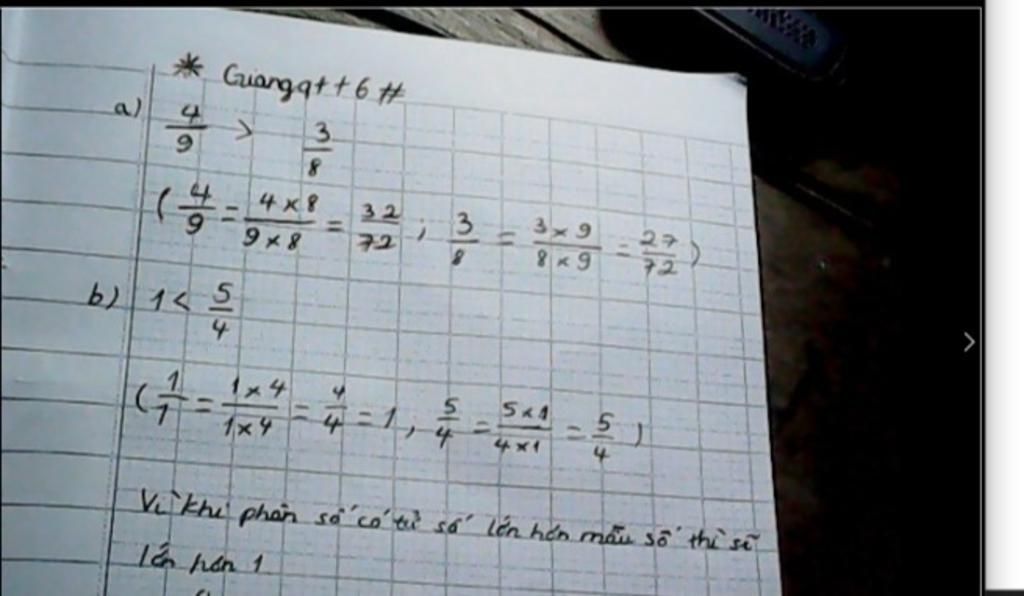 * Giangqt++6#
a) 4/9 > 3/8
( 4/9 = 4×8/9×8 = 32/72 ; 3/8 = 3×9/8×9 = 27/72 )
b) 1 < 5/4
( 1/1 = 1×4/1×4 = 4/4 = 1 , 5/4 = 5×1/4×1 = 5/4 )
Vì khi phân số có tử số lớn hơn mẫu số thì sẽ
lớn hơn 1